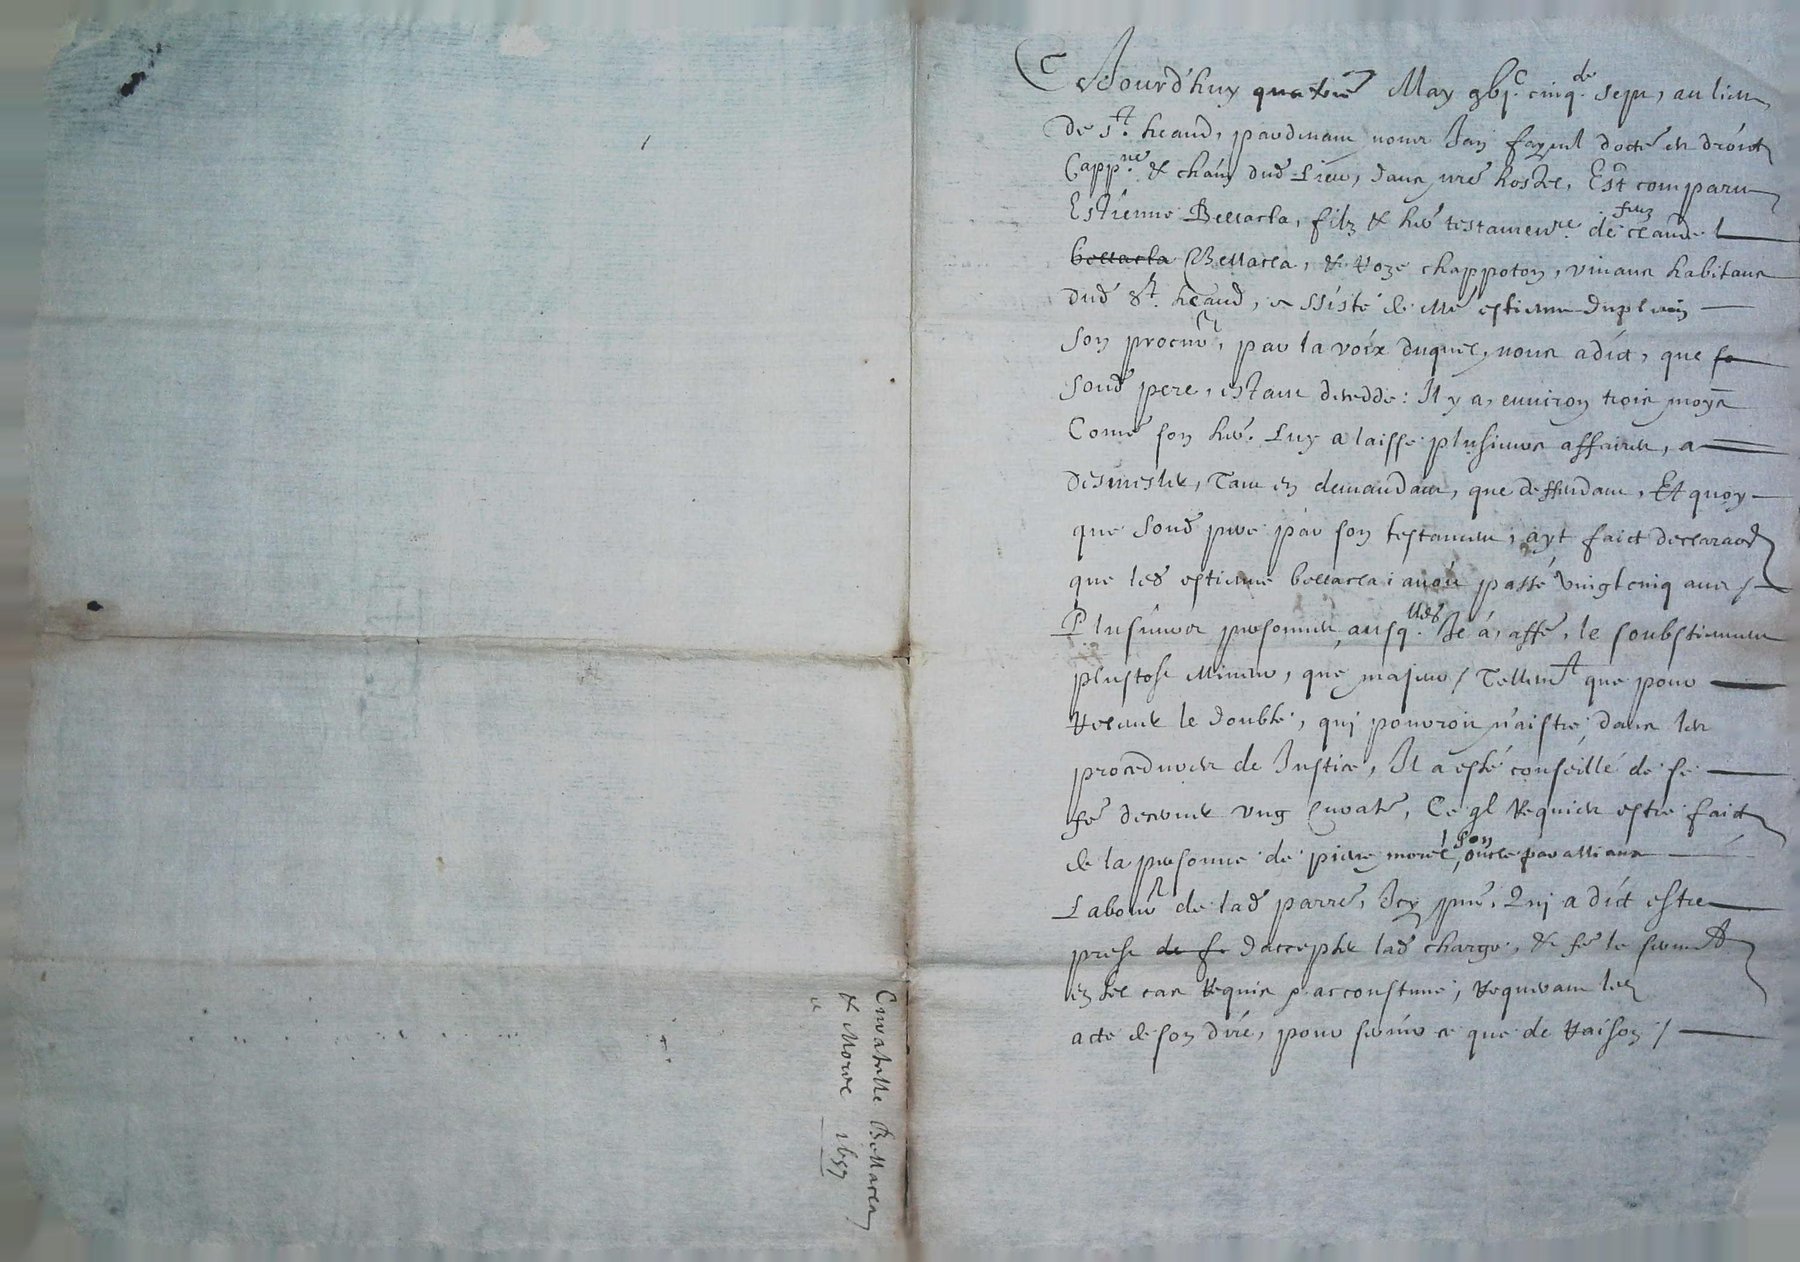 Ce Jourd'huy quatre May gbjc. cinq.te sept, au lieu,
de st. heand, pardevant nous Jan fayeul docte en droict
Capp.ne & chain dud. Lieu, dans nre hostel, Est comparu
Estienne Bellacla, filz & her testamentre. de feuz claude
bellacla Bellacla, & Roze chappoton, vivans habitans
dud st. heand, assisté de Me estienne duplain
Son procur, par la voix duquel, nous a dict, que
Soud pere, estant decedde: Il y a, environ trois moys
Come son her. Luy a laisse plusieurs affaires, a
desmesler, Tant en demandant, que deffendant, Et quoy
que Soud pere par son testament, ayt faict declaraon
que led estienne bellacla avoit passé vingt cinq ans /
Plusieurs personnes, ausq.lles Il a, affe, le soubstiennent
plustost Mineur, que majeur / Tellemt que pour
Relever le doubte, qui pouroit n'aistre, dans les
procedures de Justice, Il a esté conseillé de se
fe decerner ung Curater, Ce ql Requier estre faict
de la personne de pierre morel, son oncle par alliance
Labour de lad parre, Icy pnt, Qui a dict estre
prest de fe d'accepter lad charge, & fe le sermt
en tel cas Requis & accoustumé, Requerant led
acte de son dire, pour servir ce que de Raison /
Curatelle Bellacla
& Morel 1657